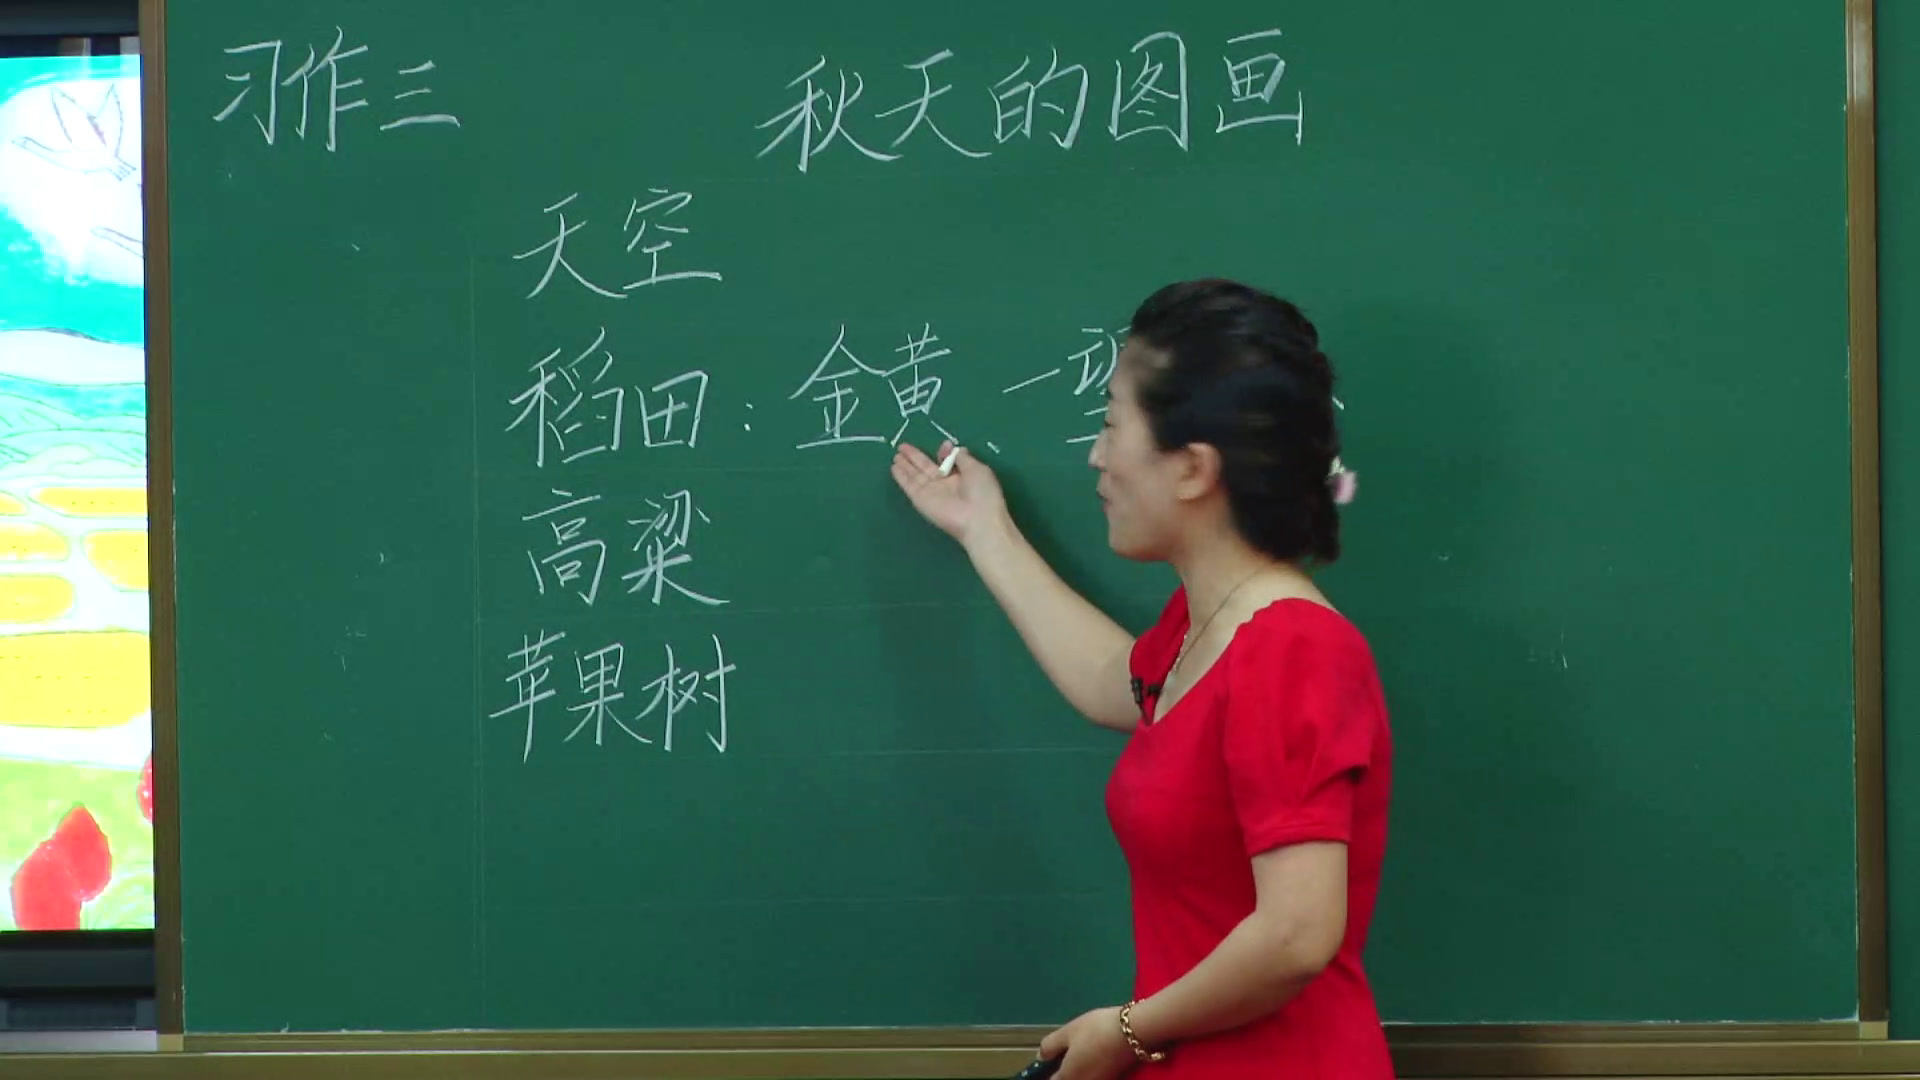 习作三 秋天的图画
天空
稻田：金黄、一望
高粱
苹果树